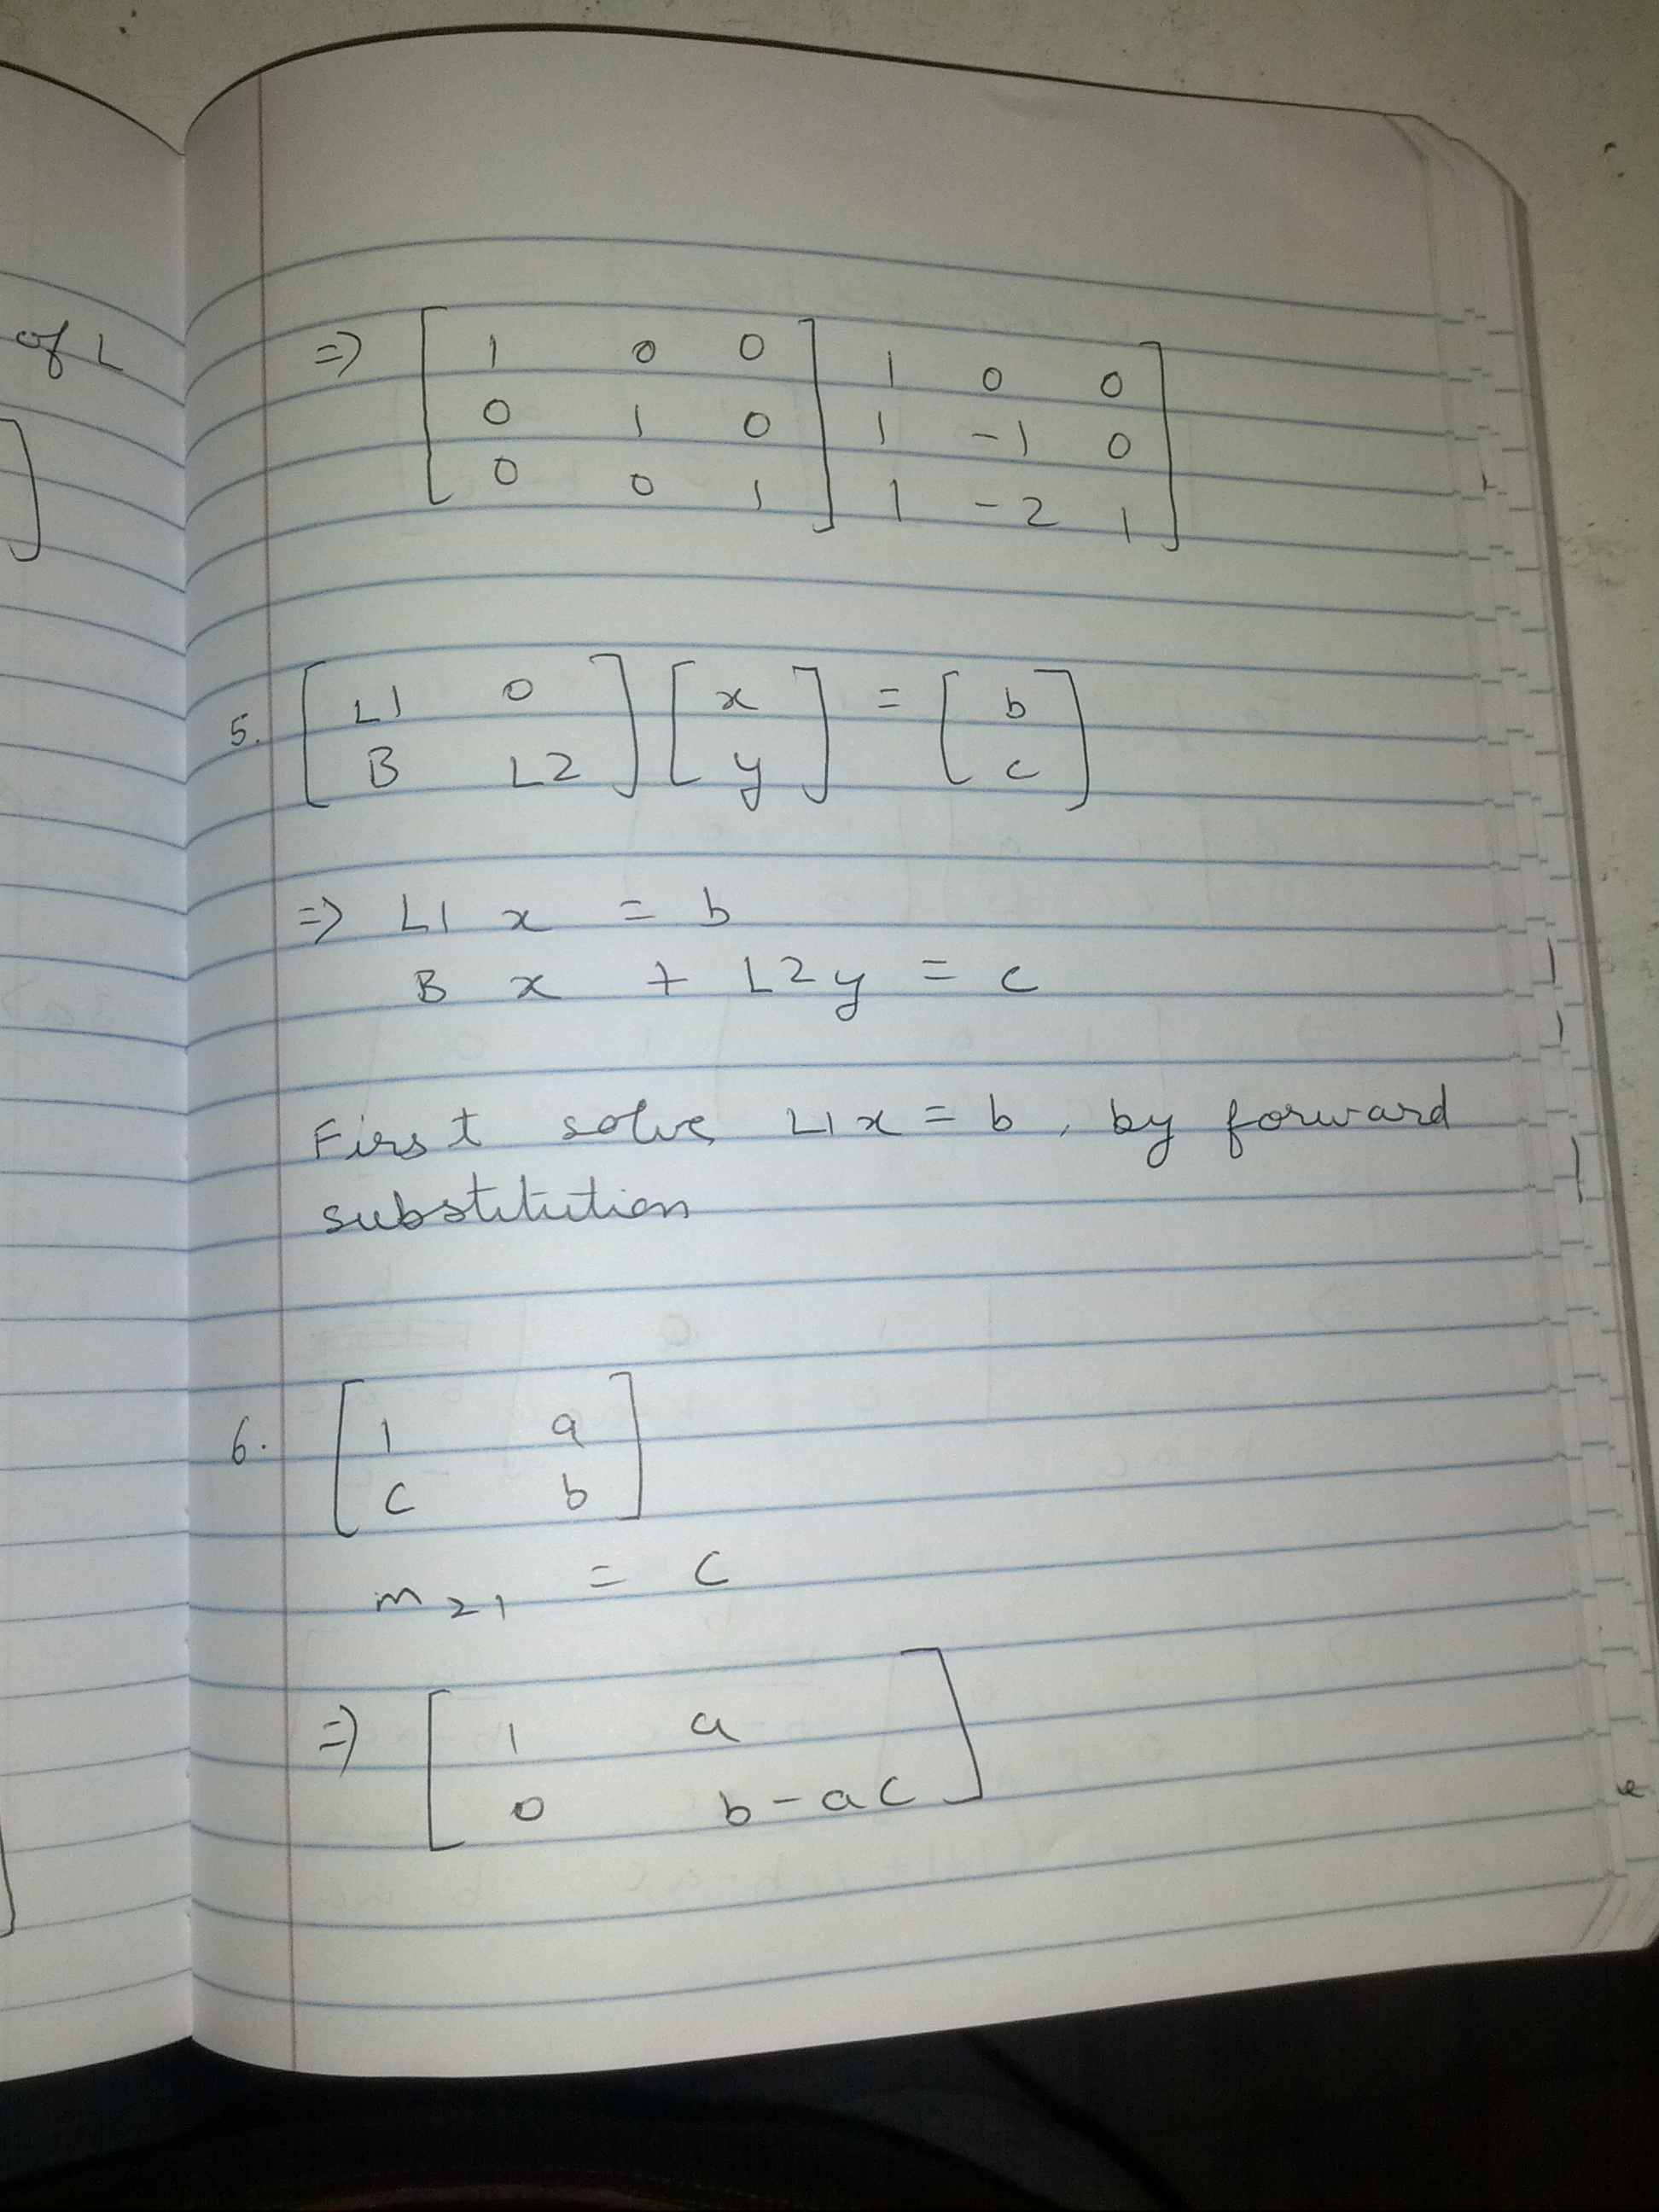 of L
=> [ 1 0 0 ] 1 0 0 ]
0 1 0 1 -1 0
0 0 1 1 -2 1
5. [ L1 0 ] [ x ] = [ b ]
B L2 y c
=> L1 x = b
B x + L2y = c
First solve L1x = b, by forward
substitution
6. [ 1 a ]
c b
m21 = c
=> [ 1 a ]
0 b-ac